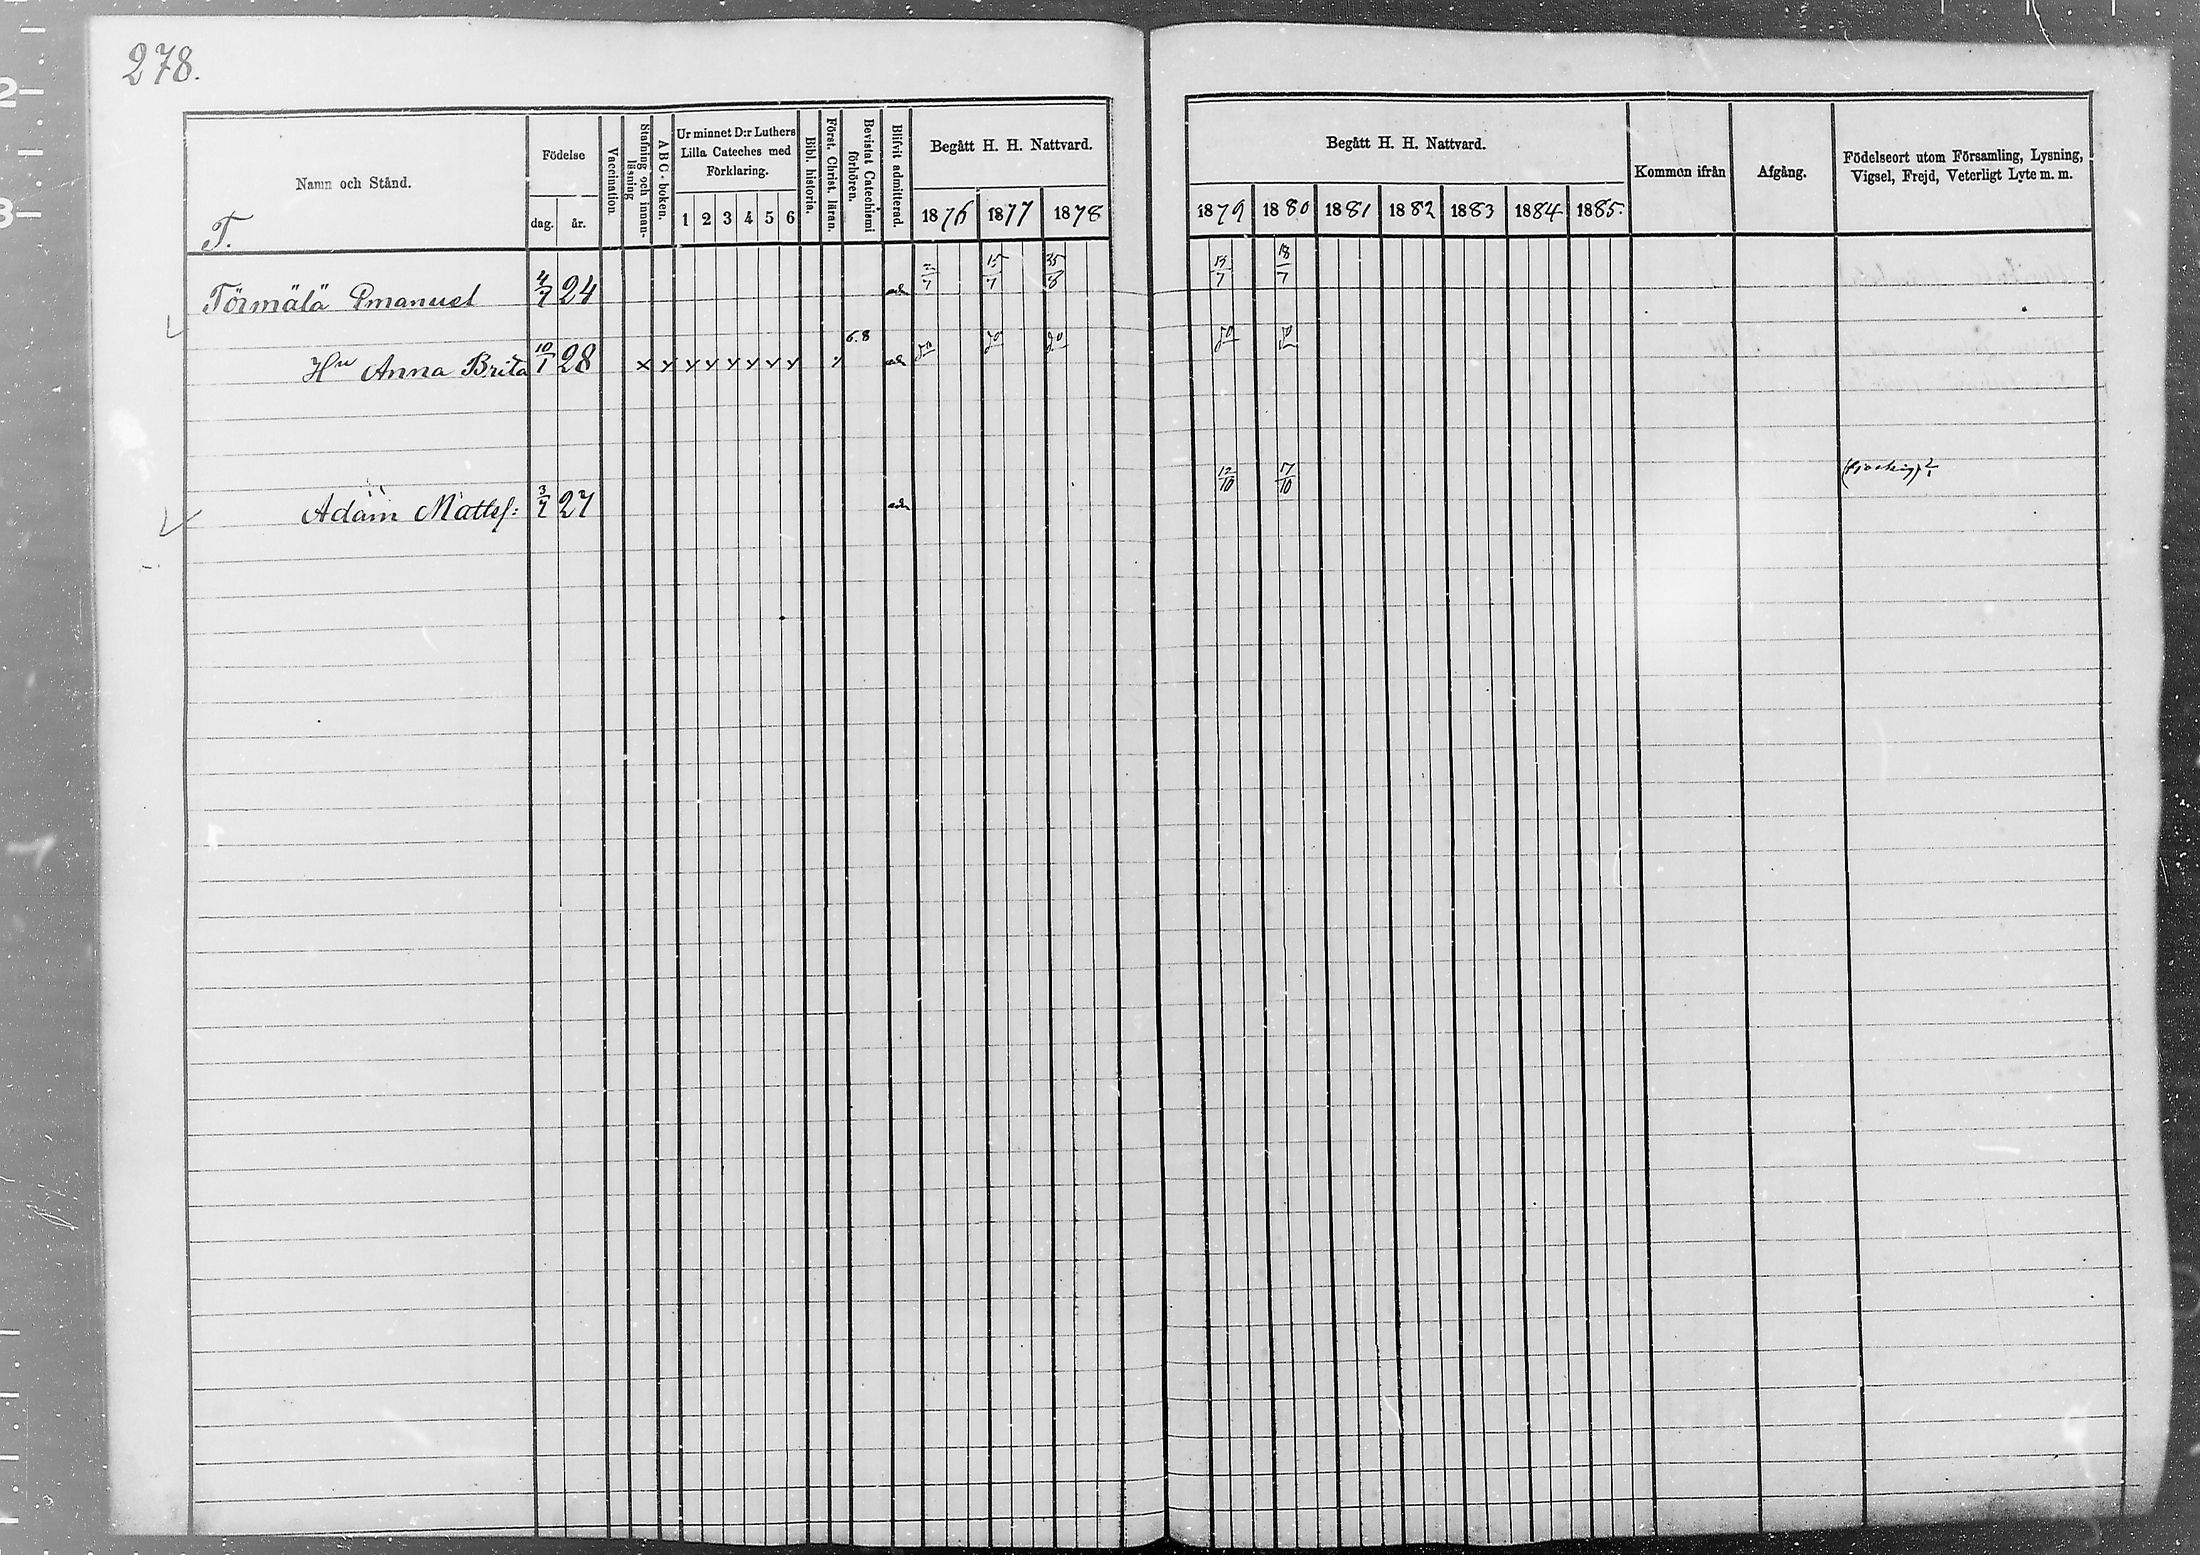 278.
Namn och Stånd.
T.
Födelse
dag. år.
Vaccination.
Stafning och innanläsning
ABC-boken.
Ur minnet D:r Luthers Lilla Cateches med Förklaring.
1 2 3 4 5 6
Bibl. historia.
Först. Christ. läran.
Bevistat Catechismi förhören.
Blifvit admitterad.
Begått H. H. Nattvard.
1876 1877 1878
Begått H. H. Nattvard.
1879 1880 1881 1882 1883 1884 1885.
Kommen ifrån
Afgång.
Födelseort utom Församling, Lysning, Vigsel, Frejd, Veterligt Lyte m. m.
Törmälä Emanuel 4/7 24 15/7 25/8 13/7 18/7
Hu Anna Brita 10/1 28 6.8
Adam Mattsf: 3/7 27 12/10 17/10